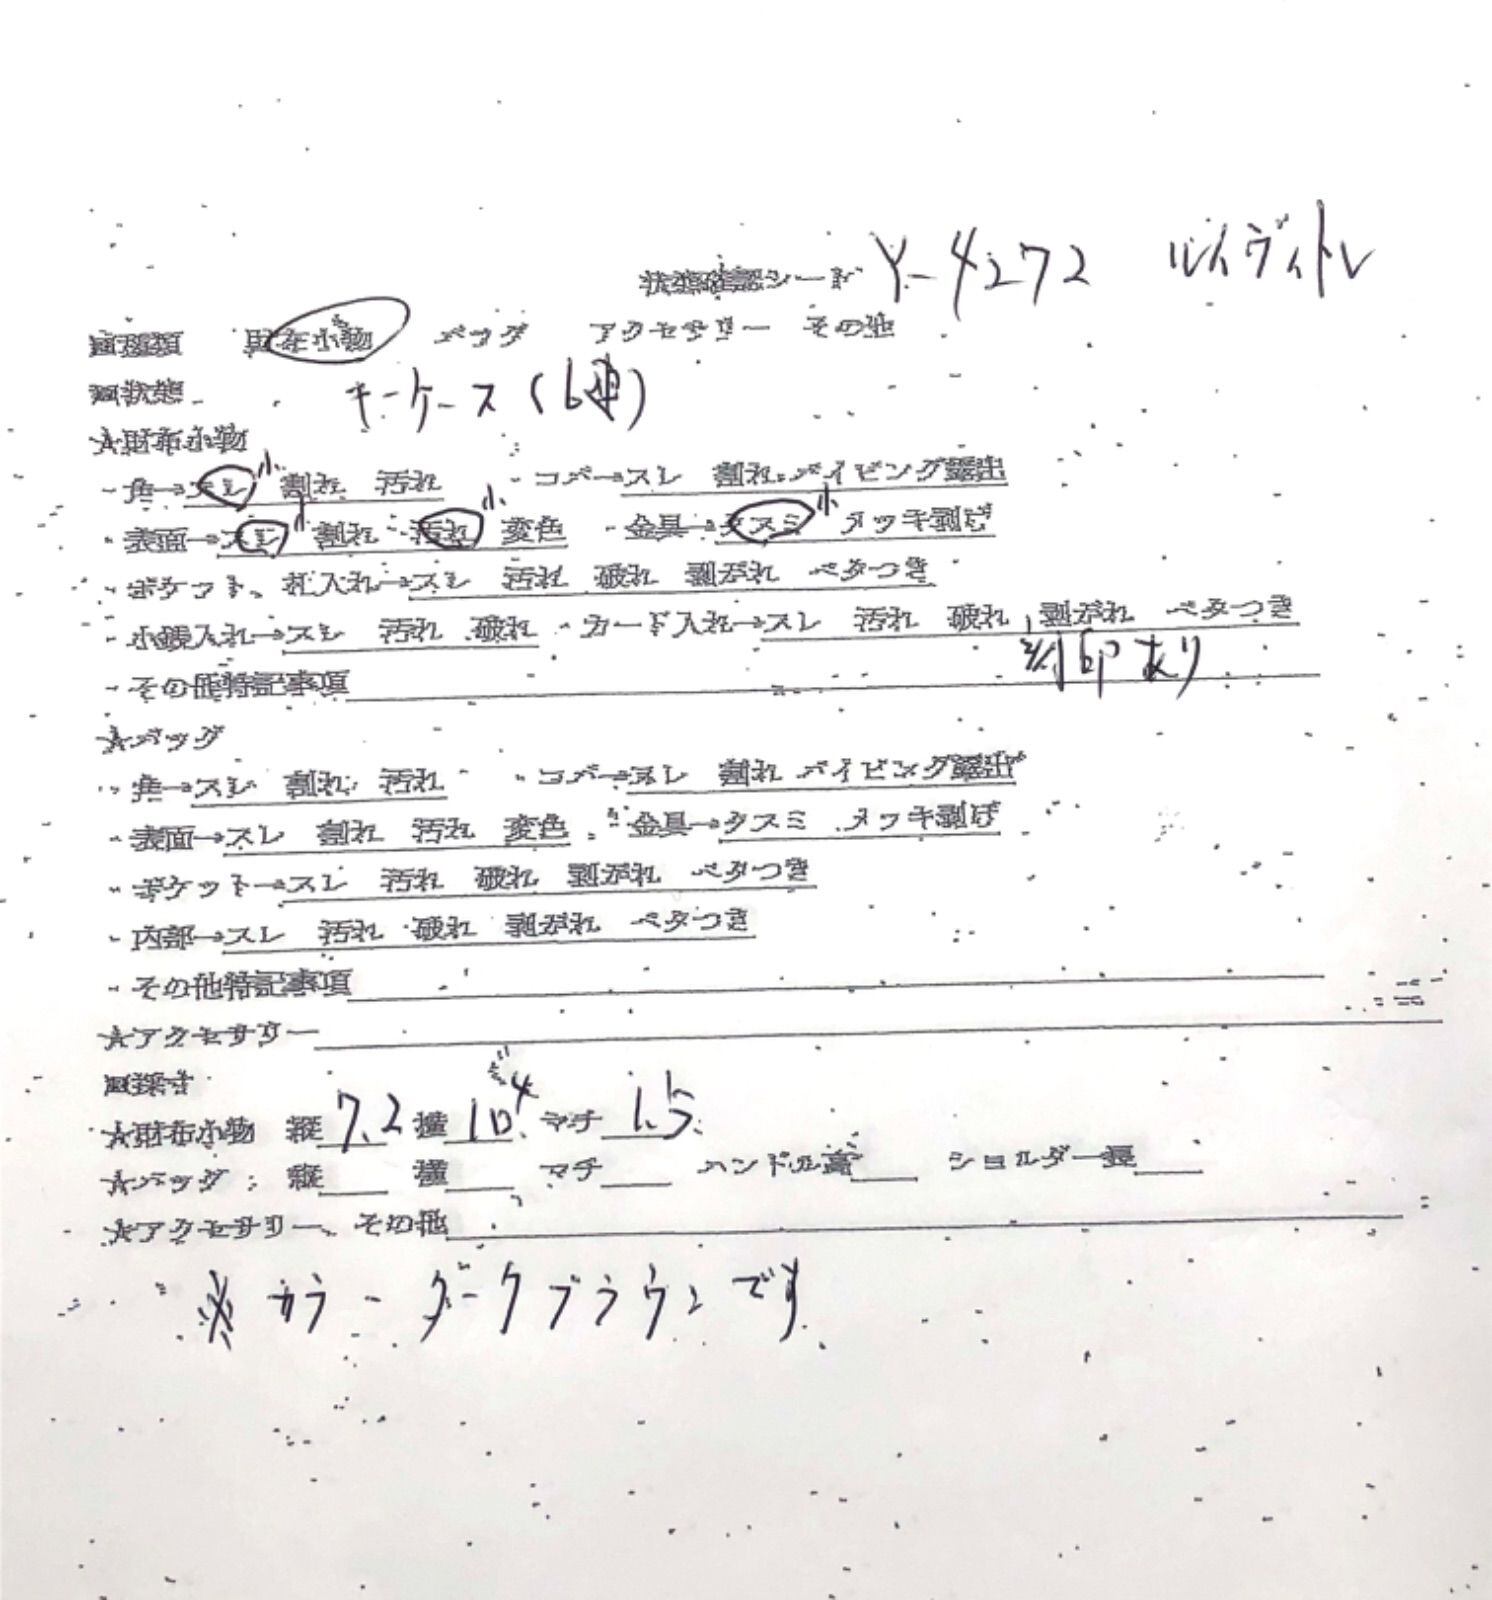 状態確認シート Y-4272 ルイヴィトン
■種類 財布小物 バッグ アクセサリー その他
■状態 キーケース(6連)
★財布小物
・角→スレ小 割れ 汚れ ・コバ→スレ 割れ パイピング露出
・表面→スレ小 割れ 汚れ小 変色 ・金具→クスミ小 メッキ剥げ
・ポケット、札入れ→スレ 汚れ 破れ 剥がれ ベタつき
・小銭入れ→スレ 汚れ 破れ ・カード入れ→スレ 汚れ 破れ 剥がれ ベタつき
・その他特記事項 刻印あり
★バッグ
・角→スレ 割れ 汚れ ・コバ→スレ 割れ パイピング露出
・表面→スレ 割れ 汚れ 変色 ・金具→クスミ メッキ剥げ
・ポケット→スレ 汚れ 破れ 剥がれ ベタつき
・内部→スレ 汚れ 破れ 剥がれ ベタつき
・その他特記事項
★アクセサリー
■採寸
★財布小物 縦7.2 横10.4 マチ1.5
★バッグ 縦 横 マチ ハンドル高 ショルダー長
★アクセサリー、その他
※カラーダークブラウンです